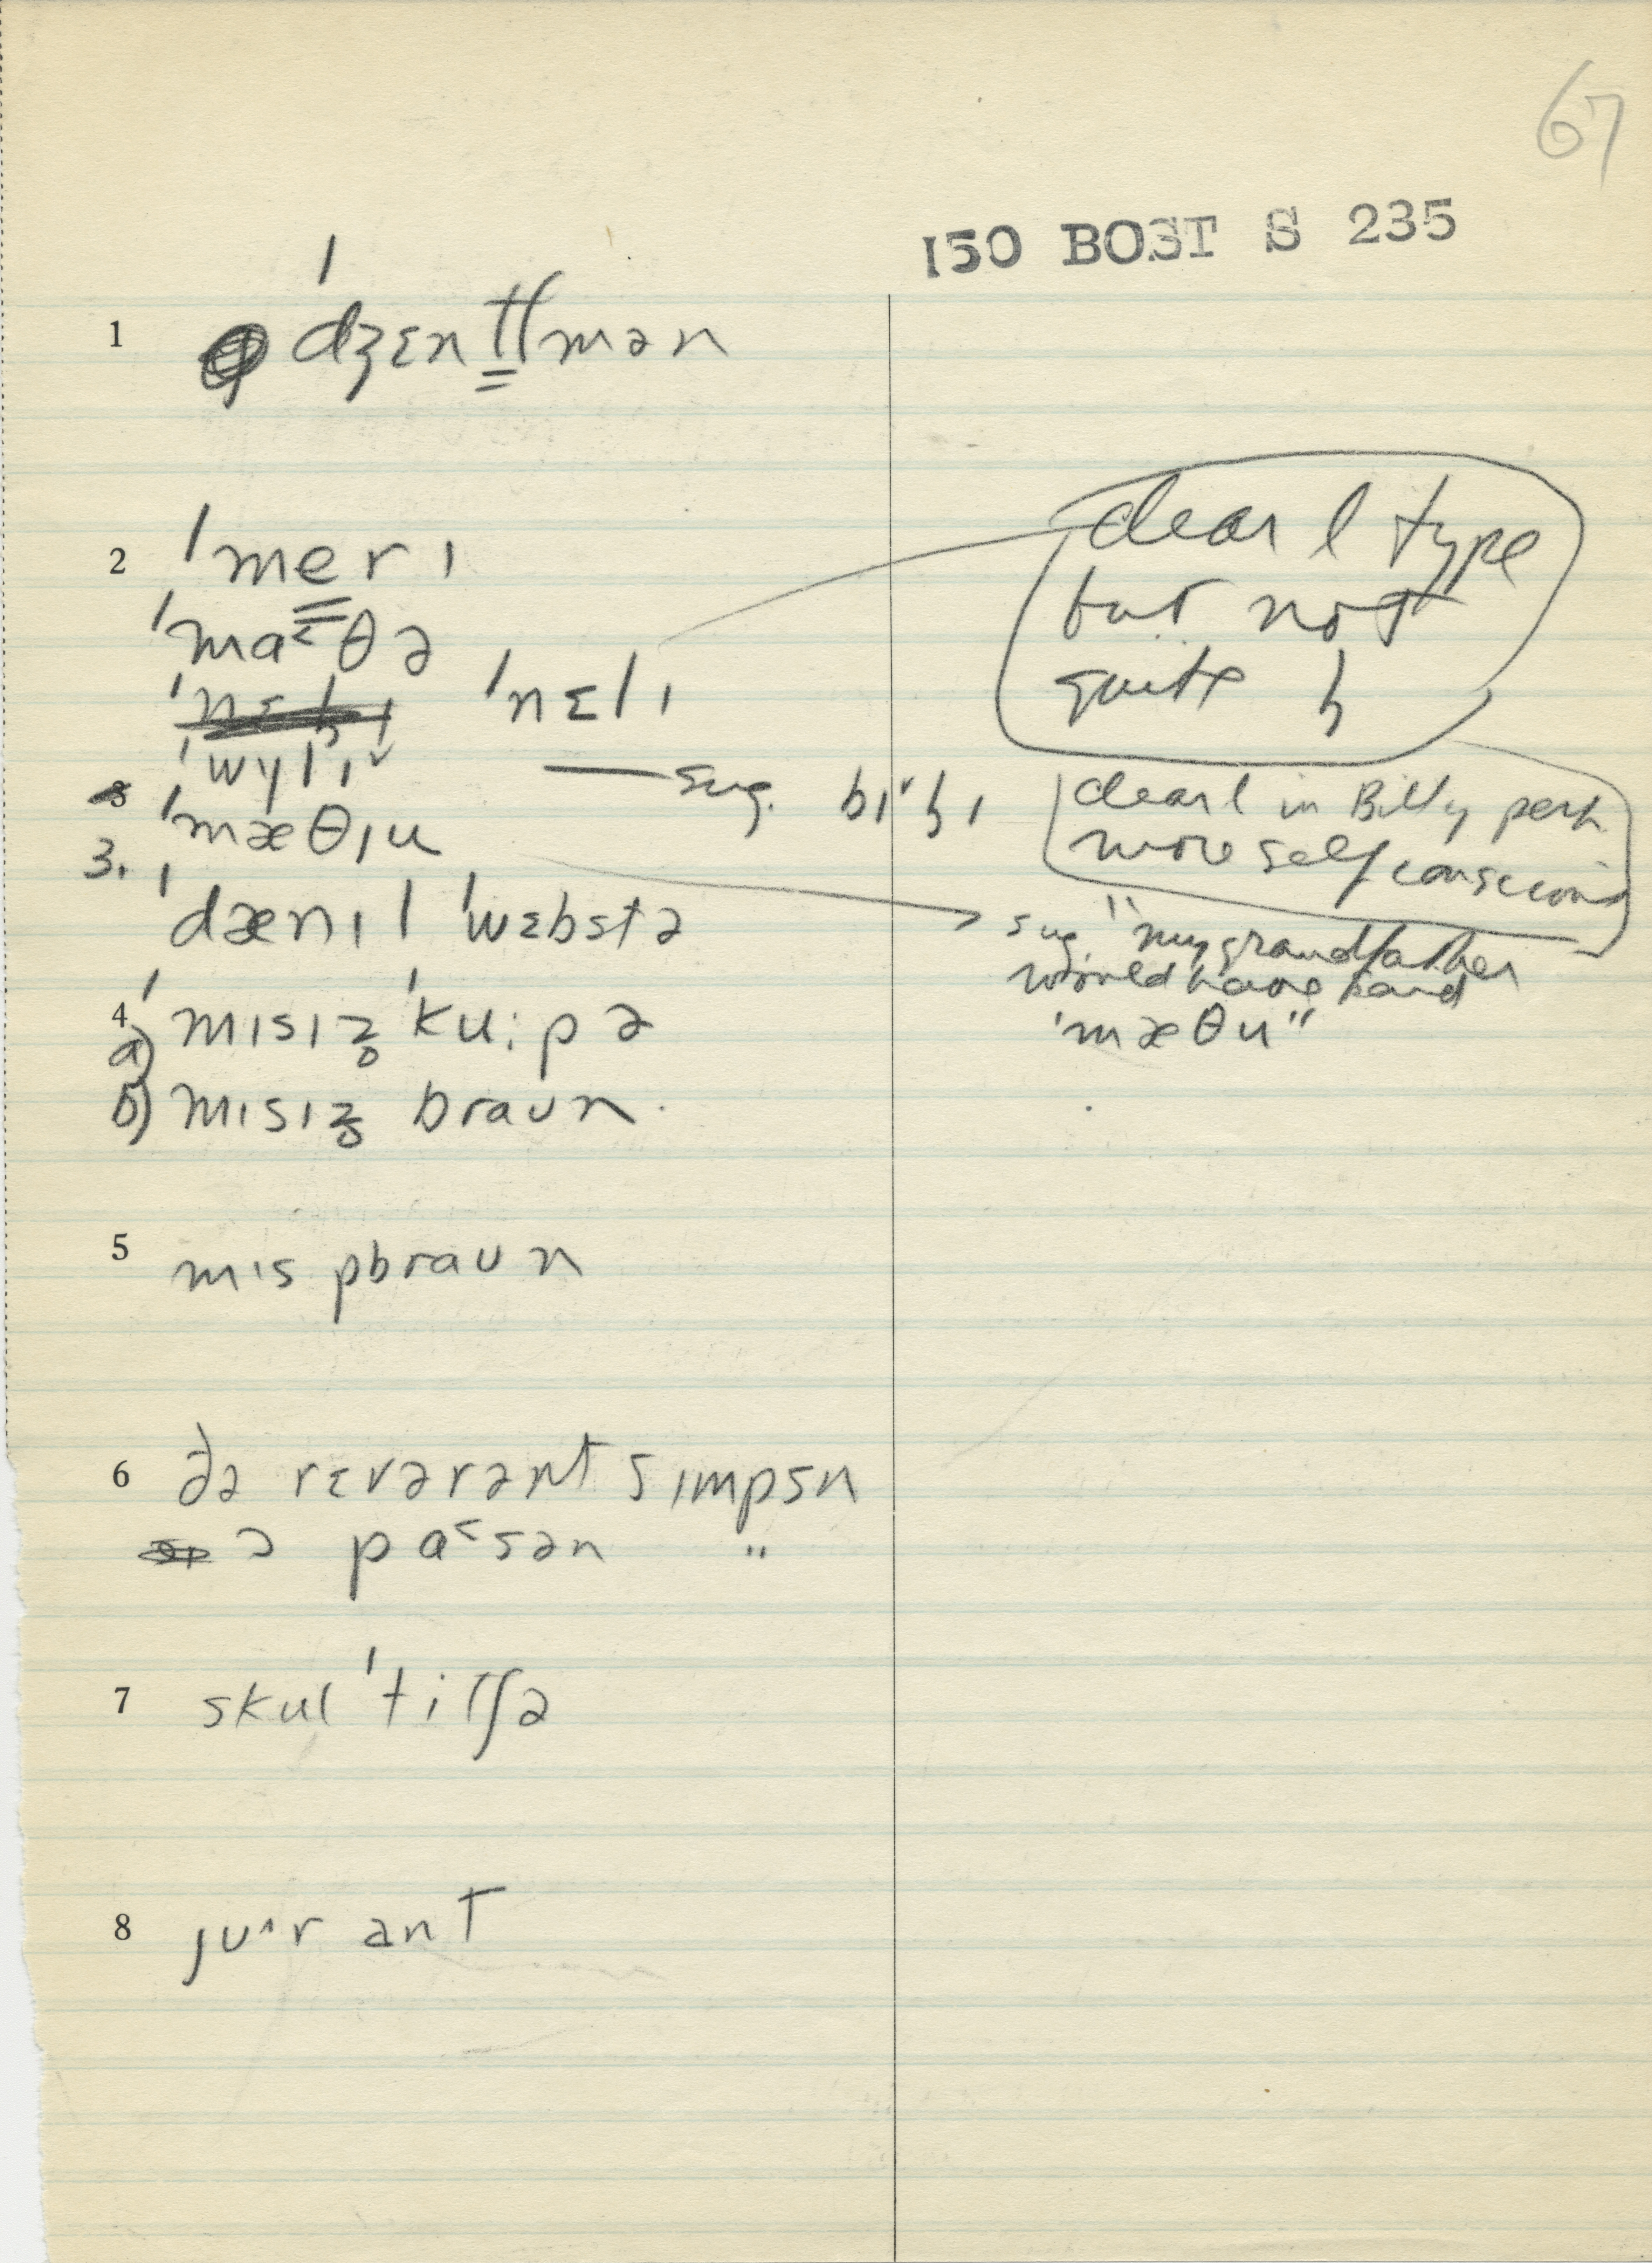 67
150 BOST S 235
1 ˈdʒɛntl̳mən
2 ˈme̳rɪ
ˈma˂θə
ˈnɛlɪ
ˈwylɪˇ — sug. bɪˇɫɪ
clear l type
but not
quite ɫ
clear l in Billy perh
more self conscious
3. ˈmæθɪu
sug. "my grandfather
would have said
ˈmæθu"
ˈdænɪl ˈwɛbstə
4 a) ˈmɪsɪz̥ ˈku:pə
b) mɪsɪz̥ braun.
5 mɪs pbraun
6 ðə rɛvərənt sɪmpsn
ə pa˂sən "
7 skul ˈtitʃə
8 jʊ^r ant